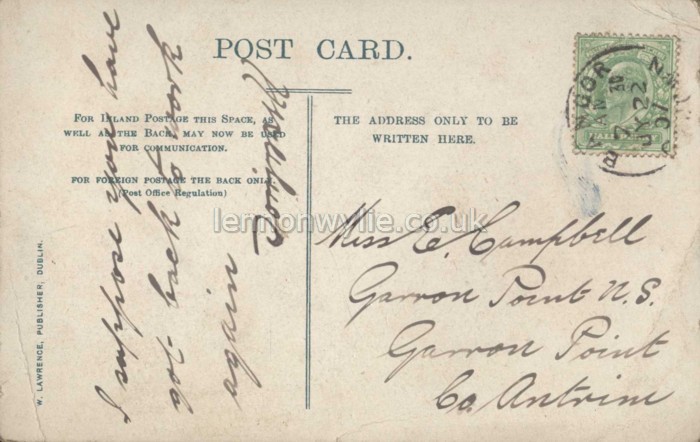 POST CARD.
FOR INLAND POSTAGE THIS SPACE, AS
WELL AS THE BACK, MAY NOW BE USED
FOR COMMUNICATION.
FOR FOREIGN POSTAGE THE BACK ONLY.
(Post Office Regulation)
THE ADDRESS ONLY TO BE
WRITTEN HERE.
I suppose you have
got back to work
again
Miss E. Campbell
Garron Point N.S.
Garron Point
Co Antrim
W. LAWRENCE, PUBLISHER, DUBLIN.
BANGOR
JY 22
07
lennonwylie.co.uk